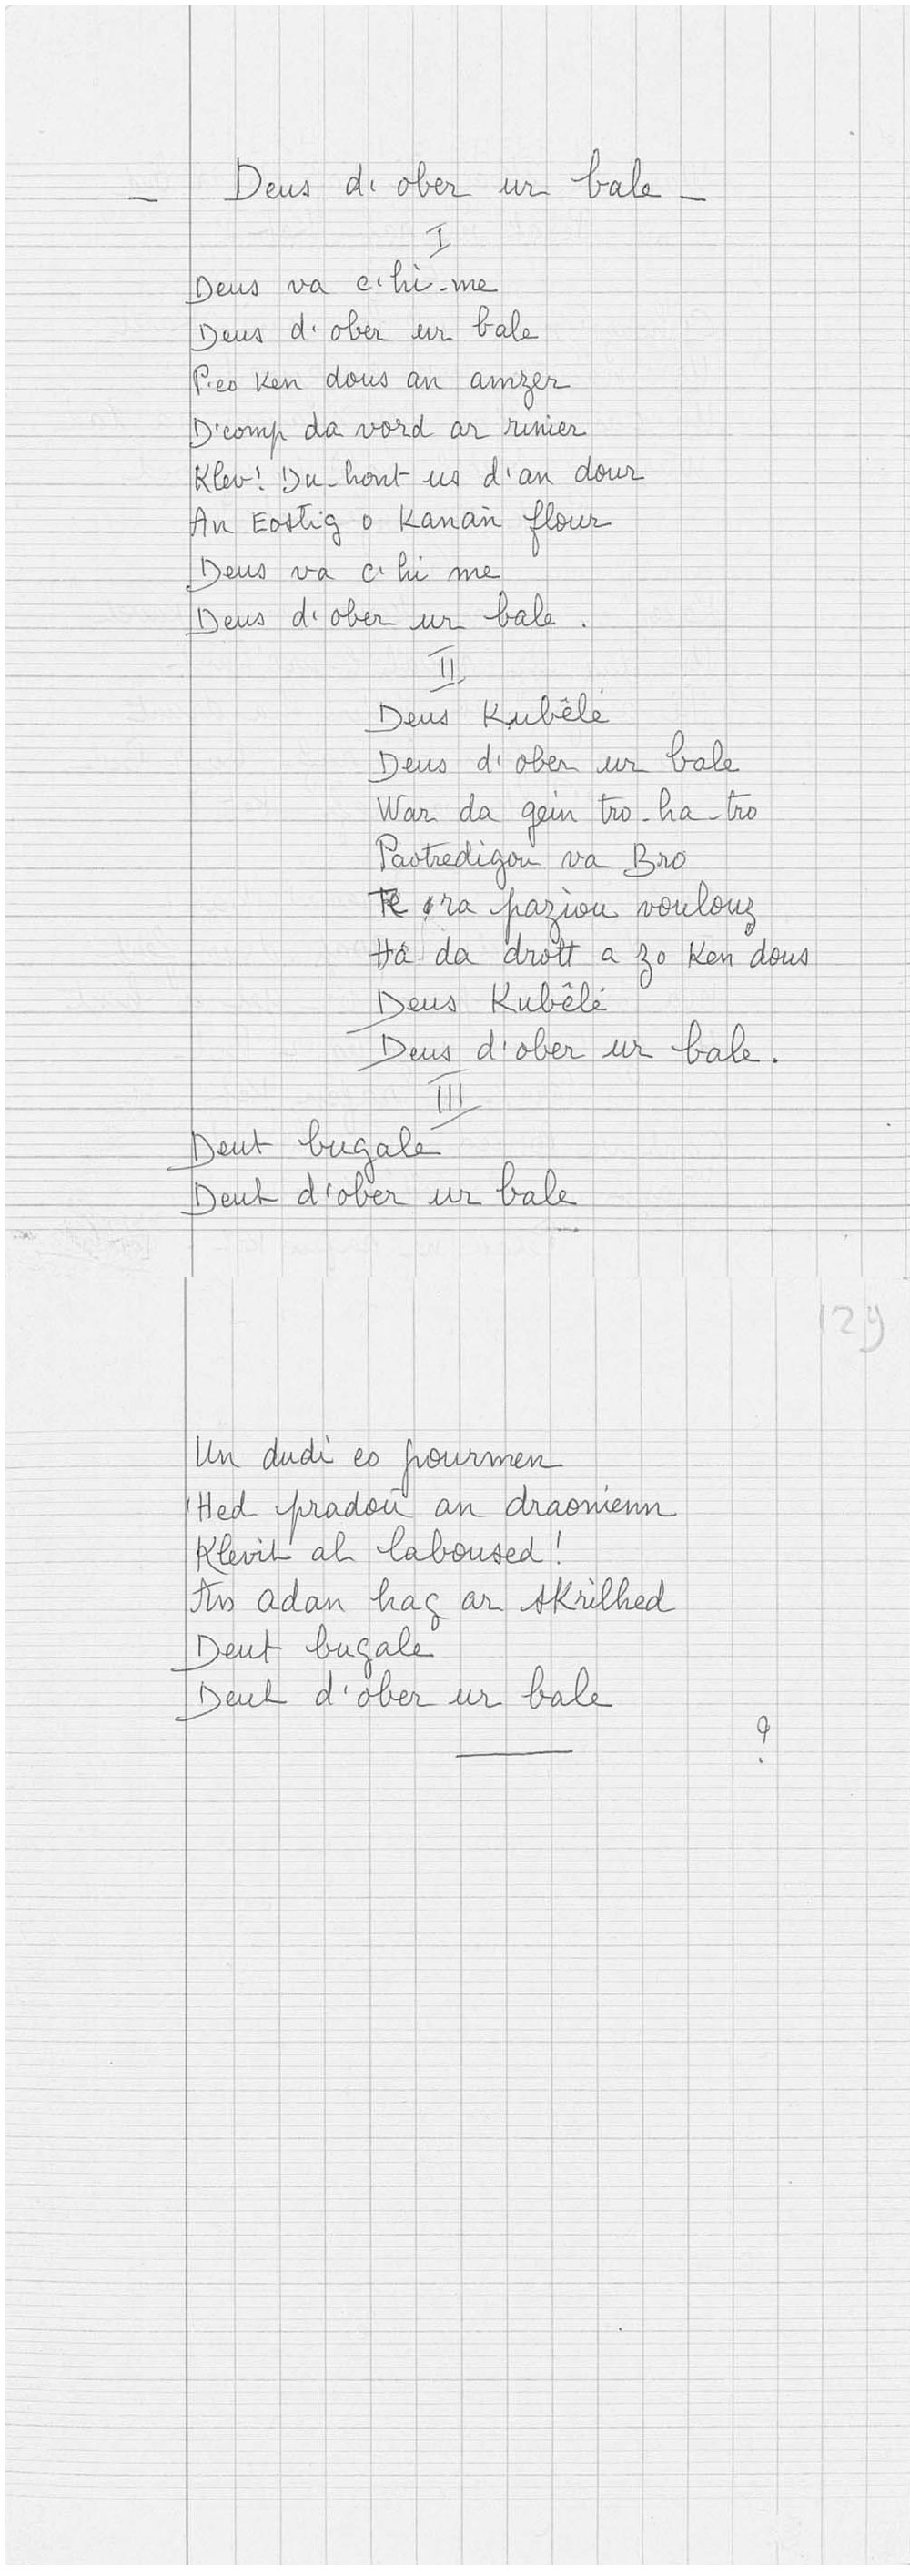 - Deus d'ober ur bale -
I
Deus va c'hi-me
Deus d'ober eur bale
P'eo ken dous an amzer
D'comp da vord ar rinier
Klev! Du-hont us d'an dour
An Eostig o kanañ flour
Deus va c'hi me
Deus d'ober ur bale.
II
Deus Kubêlé
Deus d'ober ur bale
War da gein tro-ha-tro
Paotredigou va Bro
Te ra paziou voulouz
Ha da drott a zo ken dous
Deus Kubêlé
Deus d'ober ur bale.
III
Deut bugale
Deut d'ober ur bale
129
Un dudi eo pourmen
'Hed pradoù an draonienn
Klevit al laboused!
An adan hag ar skrilhed
Deut bugale
Deut d'ober ur bale
?